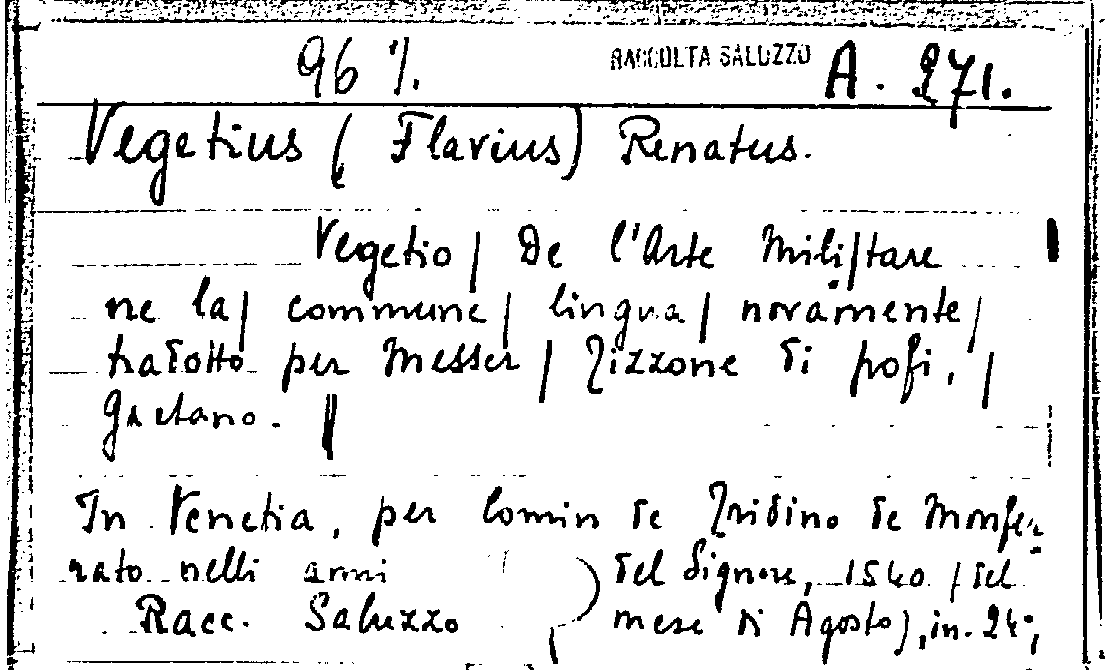 96 %.
RACCOLTA SALUZZO
A. 271.
Vegetius (Flavius) Renatus.
Vegetio / De l'Arte Mili/tare
ne la / commune / lingua / novamente /
tradotto per Messer / Tizzone di pofi, /
Gaetano. //
In Venetia, per Comin de Tridino de Monfer-
rato nelli anni del Signore, 1540 (del
Racc. Saluzzo
mese di Agosto), in-24°,